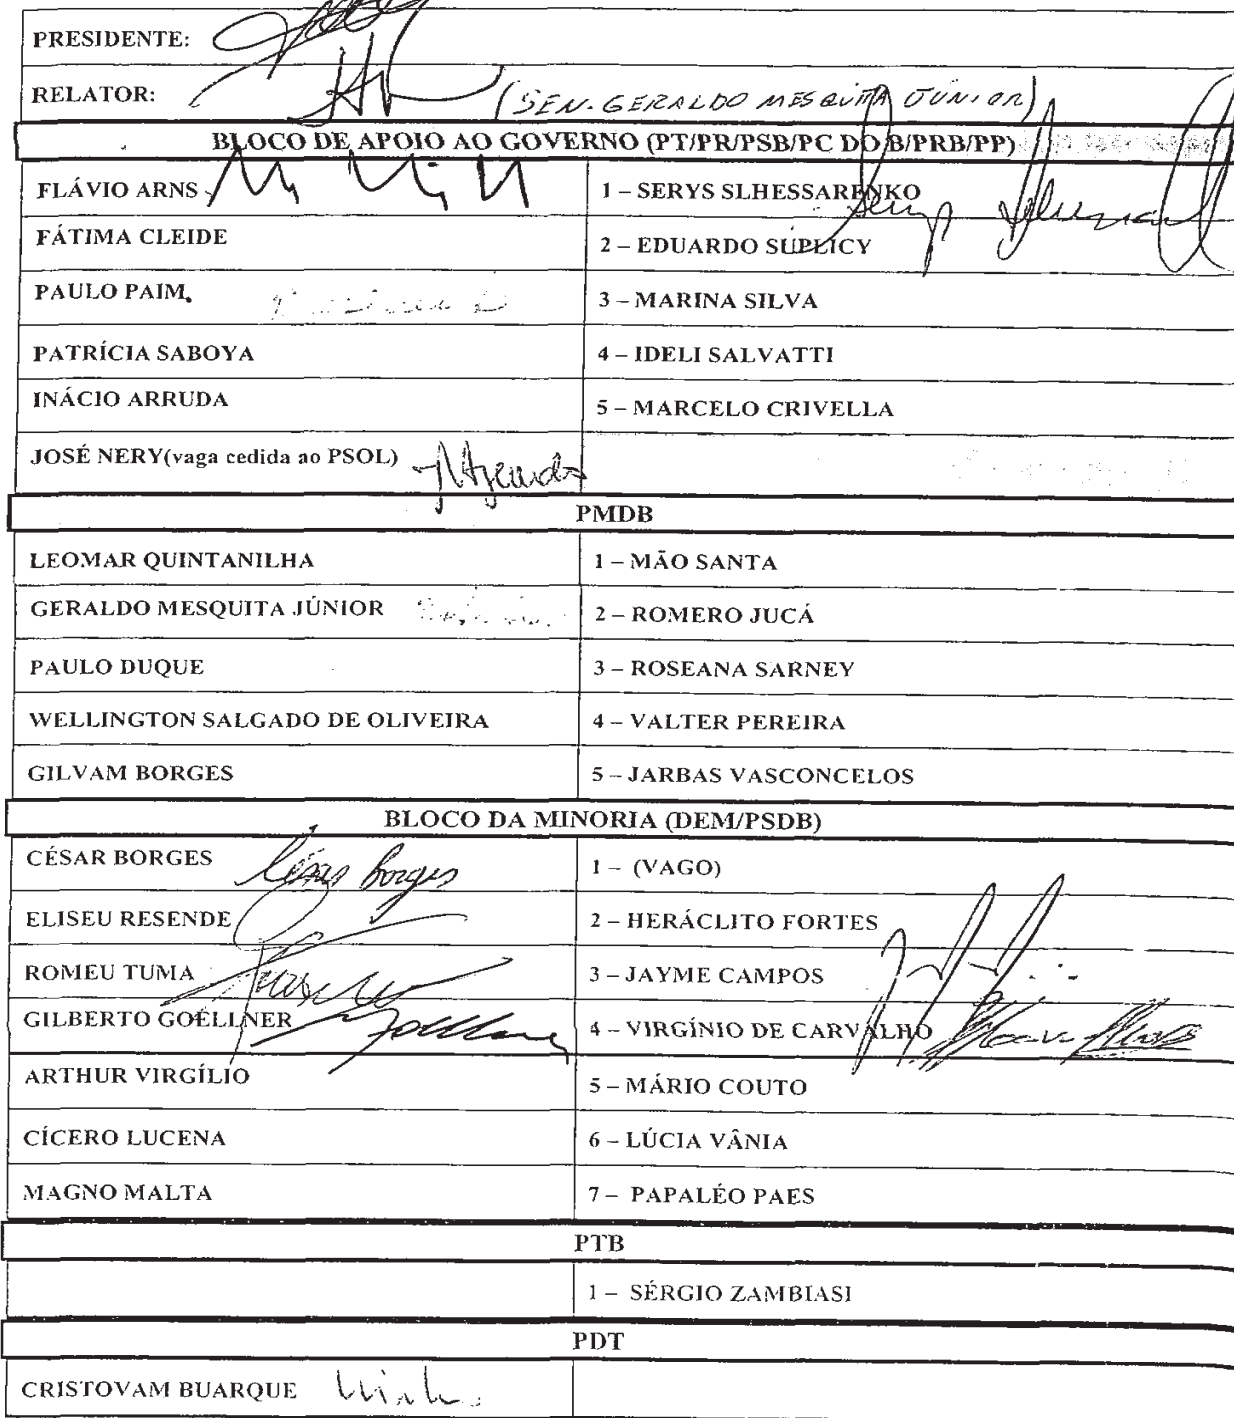 PRESIDENTE:
RELATOR: (SEN. GERALDO MESQUITA JÚNIOR)
BLOCO DE APOIO AO GOVERNO (PT/PR/PSB/PC DO B/PRB/PP)
FLÁVIO ARNS 1 – SERYS SLHESSARENKO
FÁTIMA CLEIDE 2 – EDUARDO SUPLICY
PAULO PAIM 3 – MARINA SILVA
PATRÍCIA SABOYA 4 – IDELI SALVATTI
INÁCIO ARRUDA 5 – MARCELO CRIVELLA
JOSÉ NERY(vaga cedida ao PSOL)
PMDB
LEOMAR QUINTANILHA 1 – MÃO SANTA
GERALDO MESQUITA JÚNIOR 2 – ROMERO JUCÁ
PAULO DUQUE 3 – ROSEANA SARNEY
WELLINGTON SALGADO DE OLIVEIRA 4 – VALTER PEREIRA
GILVAM BORGES 5 – JARBAS VASCONCELOS
BLOCO DA MINORIA (DEM/PSDB)
CÉSAR BORGES César Borges 1 – (VAGO)
ELISEU RESENDE 2 – HERÁCLITO FORTES
ROMEU TUMA 3 – JAYME CAMPOS
GILBERTO GOELLNER 4 – VIRGÍNIO DE CARVALHO
ARTHUR VIRGÍLIO 5 – MÁRIO COUTO
CÍCERO LUCENA 6 – LÚCIA VÂNIA
MAGNO MALTA 7 – PAPALÉO PAES
PTB
1 – SÉRGIO ZAMBIASI
PDT
CRISTOVAM BUARQUE